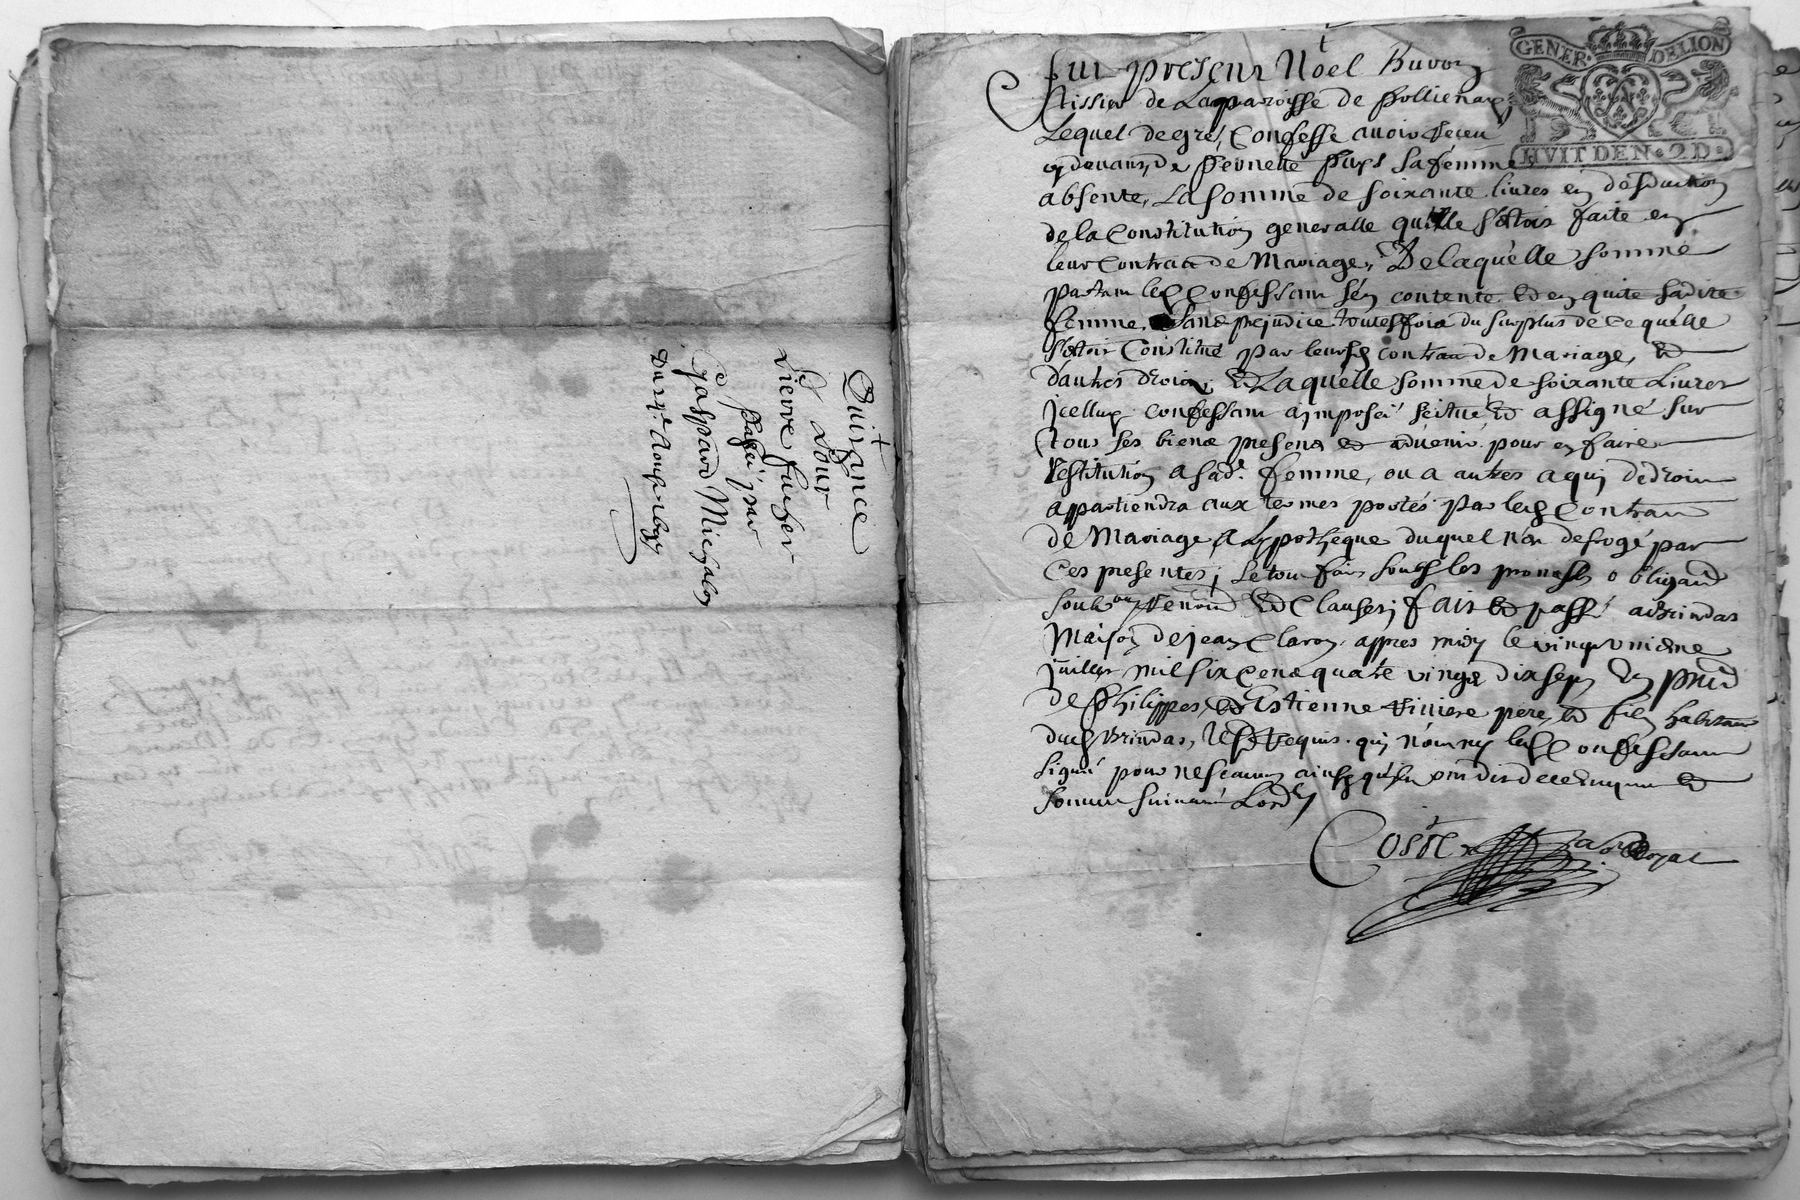 Quitance
Pour
Pierre fucher
passé par
Gaspard
Du 24e Aoust 1697
GENER. DELION
HVIT DEN. 2D.
fut present Noel
tissier de La parroisse de pollienay
Lequel de gre, Confesse avoir receu
cydevant, de pernette sa femme
absente, La somme de soixante livres en deduction
de la Constitution generalle quelle s'estoit faite en
leur Contract de Mariage, De laquelle somme
partant led Confessant s'en contente et en quite sadite
femme, Sans prejudice toutesfois du surplus de ce quelle
s'estoit Constitué par leurd contract de Mariage, et
dautres droits; et Laquelle somme de soixante Livres
icelluy confessant a imposé scitué et assigné sur
tous ses biens presens et advenir pour en faire
restitution a sad. femme, ou a autres a qui de droit
appartiendra aux termes portés par led Contract
de Mariage a Lypotheque duquel n'est desrogé par
Ces presentes; Le tout fait soubs les promesses obligaons
soubmons renons et Clauses; fait et passé a Brindas
Maison de jean Claron appres midy le vingt uniesme
juillet mil six cens quatre vingt dix sept En pnce
de Philippes, et Estienne pere et fils habitans
dud Brindas, requis qui n'ont ny led Confessant
signé pour ne scavoir ainsy qu'ils ont dit de ce enquis et
sommé suivant Lordce
Coste royal